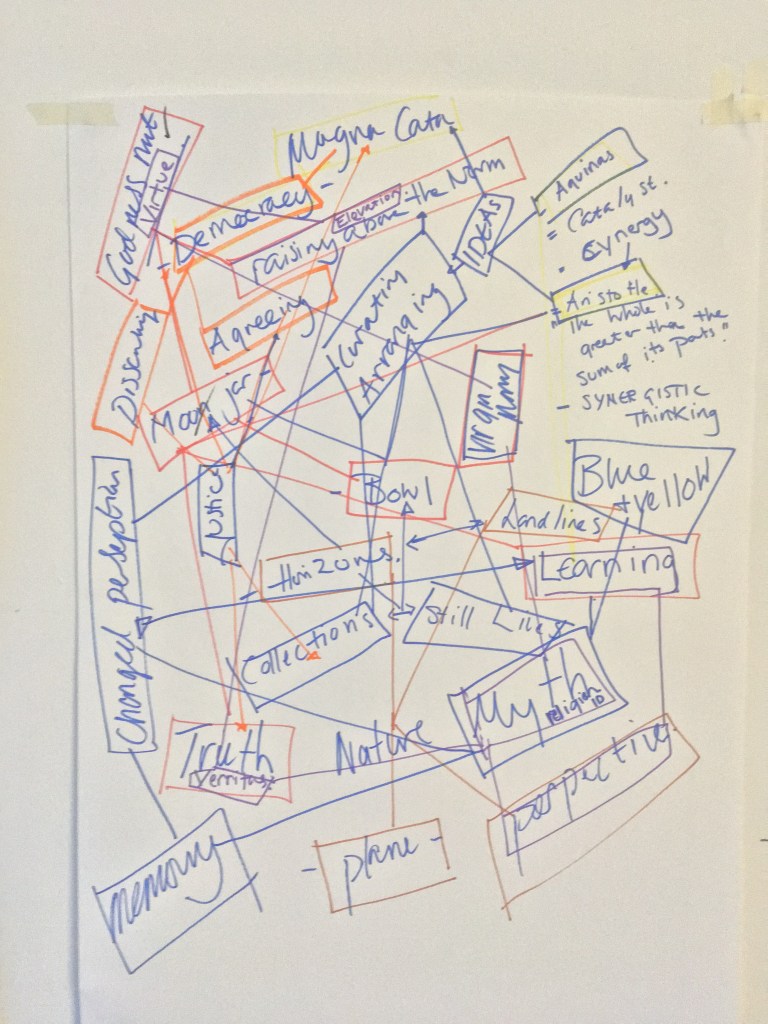 Magna Cata
Godness Nut
Virtue
Democracy -
Elevation
raising above the Norm
IDEAs
Aquinas
= Catalyst.
• Synergy
= Aristotle
"The whole is
greater than the
sum of its parts"
- SYNERGISTIC
Thinking
Agreeing
Curating
Arranging
Dissenting
Moon jar -
Virgin
Mary
Justice
- Bowl
Blue
+ yellow
Landlines
Changed perseption
- Horizons.
Learning
Collections
Still Lifes
Myth
religion
Truth
Verritas
Nature
perspective
memory
- plane -